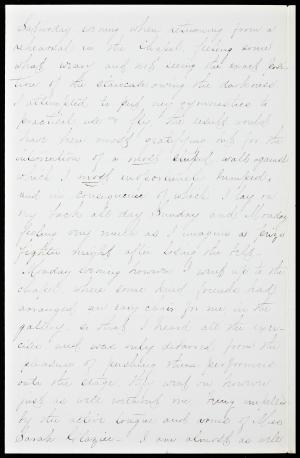 Saturday evening when returning from a
rehearsal in the Chapel, feeling some
what weary and not seeing the exact posi
tion of the staircase owing the darkness
I attempted to put my gymnastics to
practical use & fly, the result would
have been most gratifying but for the
of a most sinful wall against
which I most bumped,
and in consequence of which I lay on
my back all day Sunday and Monday
feeling very much as I imagine a prize
fighter might after losing the belt.
Monday evening however I went up to the
chapel where some kind friends had
arranged an easy chair for me in the
gallery so that I heard all the exer
cises and was only debarred from the
pleasure of pushing the performers
onto the stage. They went on however
just as well without me being impelled
by the active tongue and arms of Miss
Sarah Glazier - I am almost as well